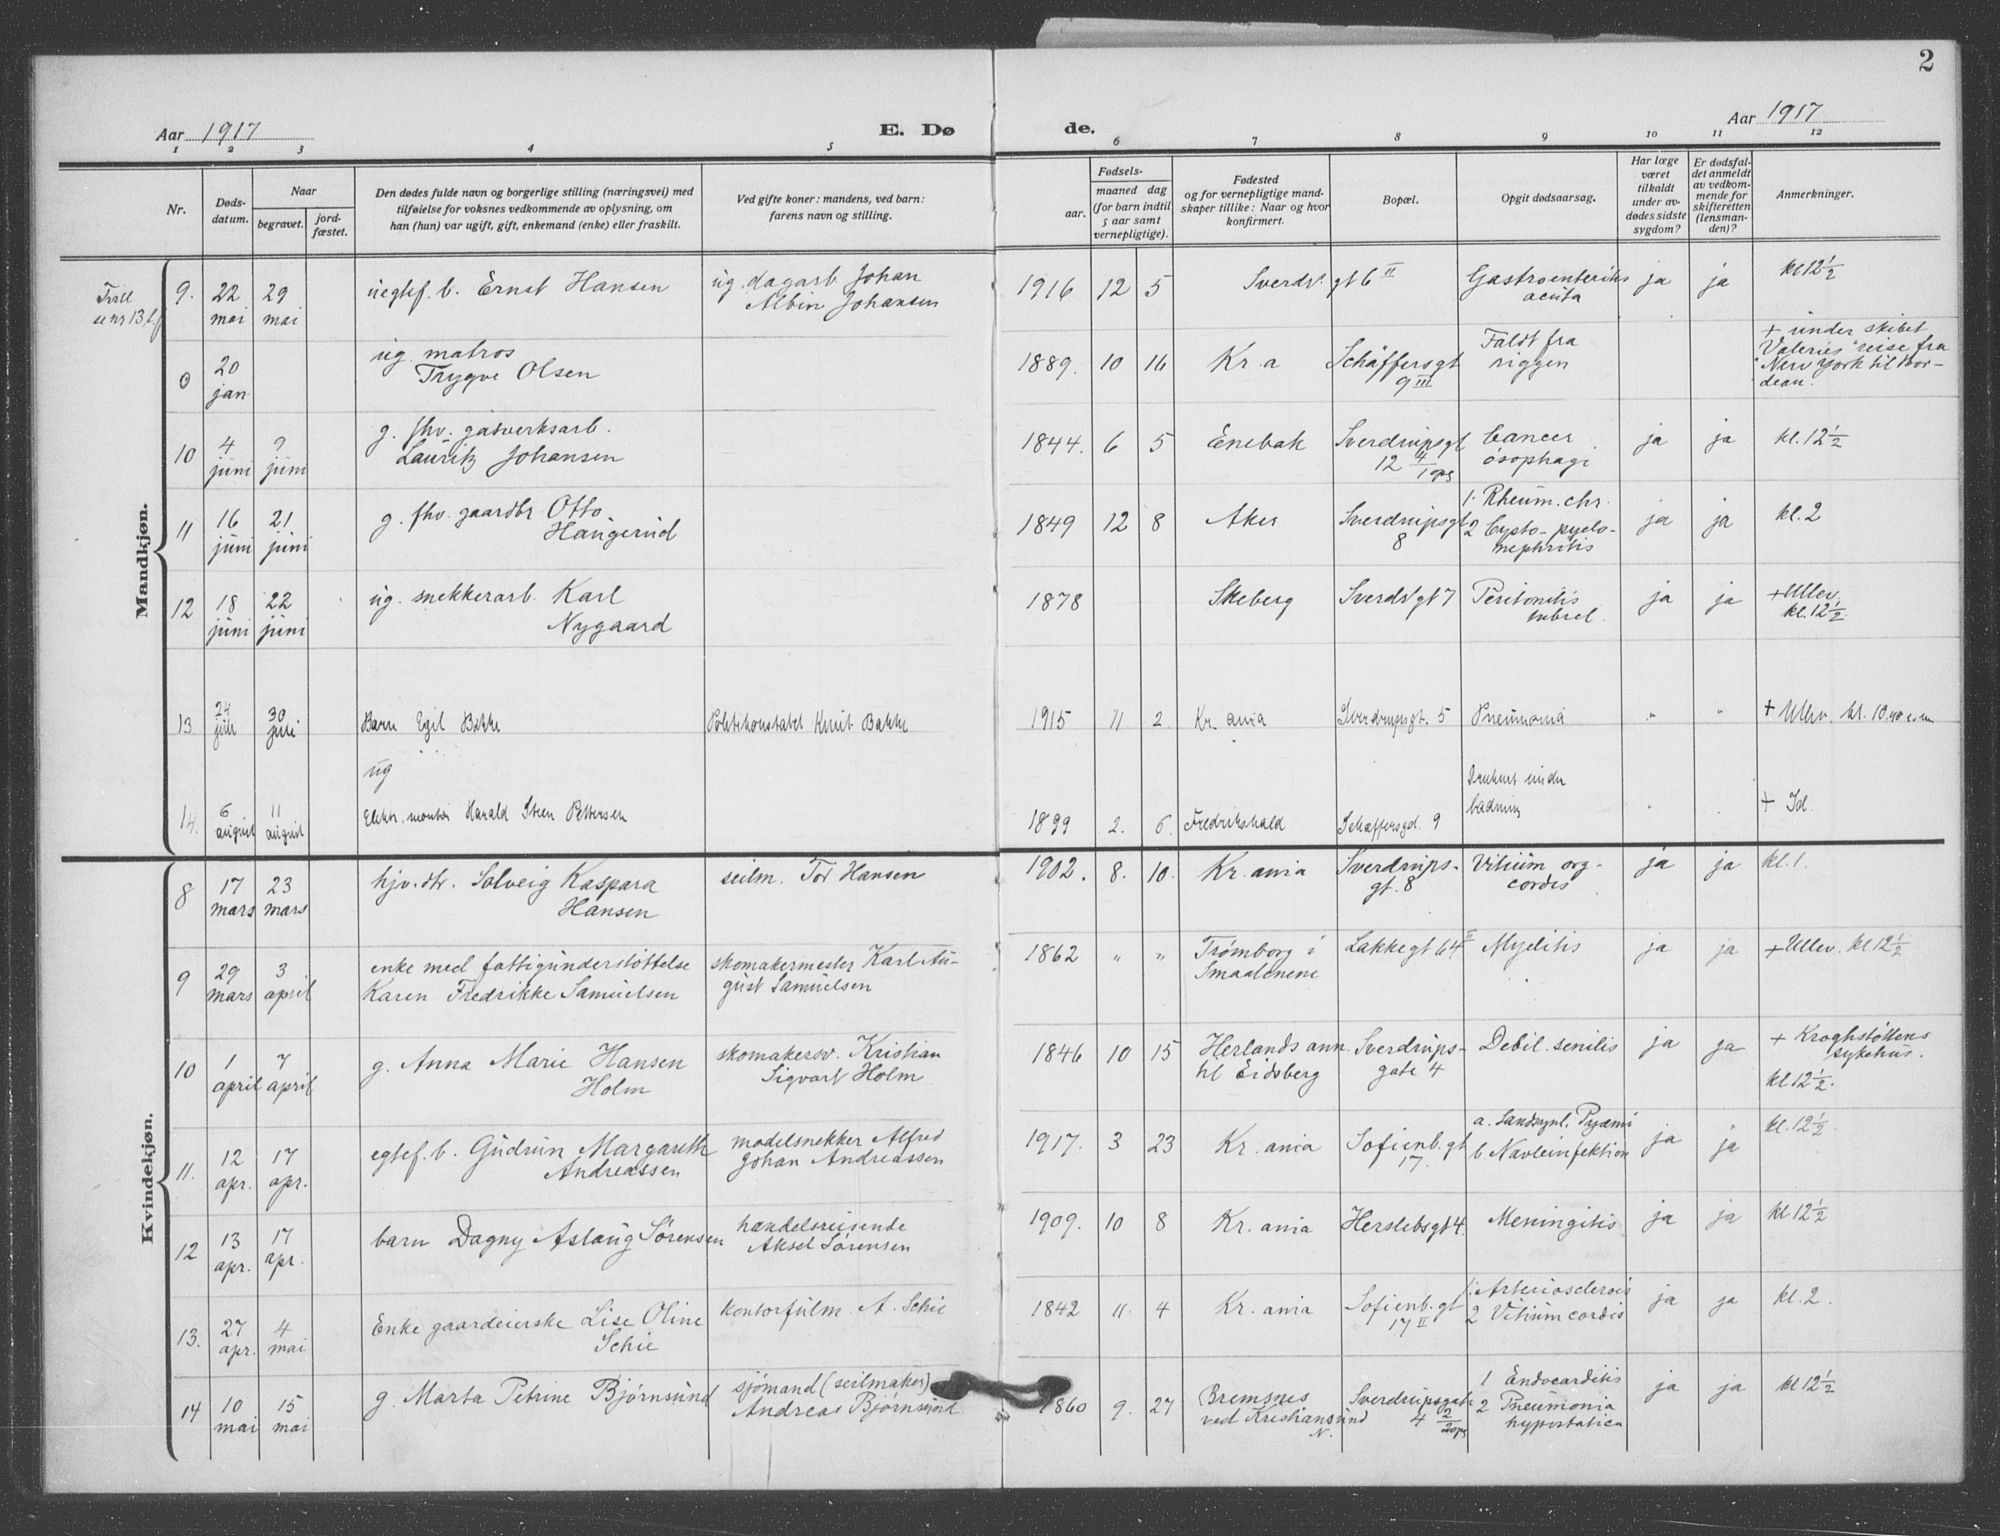 2
Aar 1917
E. Dø
de.
Aar 1917
1 2 3 4 5 6 7 8 9 10 11 12
Nr.
Døds-
datum.
Naar
begravet.
jord-
fæstet.
Den dødes fulde navn og borgerlige stilling (næringsvei) med
tilføielse for voksnes vedkommende av oplysning, om
han (hun) var ugift, gift, enkemand (enke) eller fraskilt.
Ved gifte koner: mandens, ved barn:
farens navn og stilling.
Fødsels-
aar.
maaned dag
(for barn indtil
5 aar samt
vernepligtige).
Fødested
og for vernepligtige mand-
skaper tillike: Naar og hvor
konfirmert.
Bopæl.
Opgit dødsaarsag.
Har læge
været
tilkaldt
under av-
dødes sidste
sygdom?
Er dødsfal-
det anmeldt
av vedkom-
mende for
skifteretten
(lensman-
den)?
Anmerkninger.
Mandkjøn.
9. 22 mai 29 mai
uegtef. b. Ernst Hansen
ug. dagarb. Johan
Albin Johansen
1916 12 5 Sverdr. gt 6 II
Gastroenteritis
acuta
ja ja kl 12 1/2
0 20 jan
ug. matros
Trygve Olsen
1889. 10 16 Kr. a
Schäffersgt
9 III
Faldt fra
riggen
+ under skibet
"Valeries" reise fra
New York til Bor-
deau.
10 4 juni ? juni
g. fhv. gasverksarb.
Lauritz Johansen
1844. 6 5 Enebak
Sverdrupsgt
12 4/1 opg
Cancer
øsophagi
ja ja kl. 12 1/2
11 16 juni 21 juni
g. fhv. gaardbr. Otto
Haugerud
1849 12 8 Aker
Sverdrupsgt
8
1. Rheum. chr.
2 Cysto-pyelo-
nephritis
ja ja kl. 2
12 18 juni 22 juni
ug. snekkerarb. Karl
Nygaard
1878 Skeberg Sverdr gt 7
Peritonitis
tubrel.
ja ja + Ullev.
kl. 12 1/2
13. 24 juli 30 juli
Barn Egil Bakke
Politikonstabel Knut Bakke
1915 11 2 Kr. ania Sverdrupsgt. 5 Pneumonia " " + Ullev. kl. 10.40 e.m
14. 6 august 11 august
ug
Elektr. montør Harald Steen Pettersen
1899 2. 6. Fredrikshald Schäffersgd. 9
Druknet under
badning
+ Id.
Kvindekjøn.
8 17 mars 23 mars
hjv. dtr. Solveig Kaspara
Hansen
seilm. Tor Hansen
1902. 8. 10. Kr. ania
Sverdrups-
gt. 8
Vitium org-
cordis
ja ja kl. 1.
9 29 mars 3 april
enke med fattigunderstöttelse
Karen Fredrikke Samuelsen
skomakermester Karl Au-
gust Samuelsen
1862 " "
Trømborg i
Smaalenene
Lakkegt 64 II Myelitis
ja ja + Ullev. kl 12 1/2
10 1 april 7 april
g. Anna Marie Hansen
Holm
skomakersv. Kristian
Sigvart Holm
1846 10 15
Herlands ann.
til Eidsberg
Sverdrups-
gate 4
Debil. senilis
ja ja
+ Kroghstøttens
sykehus.
kl 12 1/2.
11. 12 apr. 17 apr.
egtef. b. Gudrun Margareth
Andreassen
modelsnekker Alfred
Johan Andreassen
1917. 3 23 Kr. ania
Sofienb. gt
17.
b. Navleinfektion
ja ja kl. 12 1/2
12 13 apr. 17 apr.
barn Dagny Aslaug Sørensen
handelsreisende
Aksel Sørensen
1909. 10 8 Kr. ania Herslebsgt 4. Meningitis ja ja kl 12 1/2
13. 27 apr. 4 mai
Enke gaardeierske Lise Oline
Schie
kontorfulm. A. Schie
1842 11. 4 Kr. ania
Sofienb. gt
17 II
1. Arteriosclerosis
2 Vitium cordis
ja ja kl. 2.
14 10 mai 15 mai
g. Marta Petrine Bjørnsund
sjömand (seilmaker)
Andreas Bjørnsund
1860 9. 27
Bremsnes
ved Kristiansund
N.
Sverdrupsgate
4 2/2 opg
1 Endocarditis
2 Pneumonia
hypostatica
ja ja kl 12 1/2